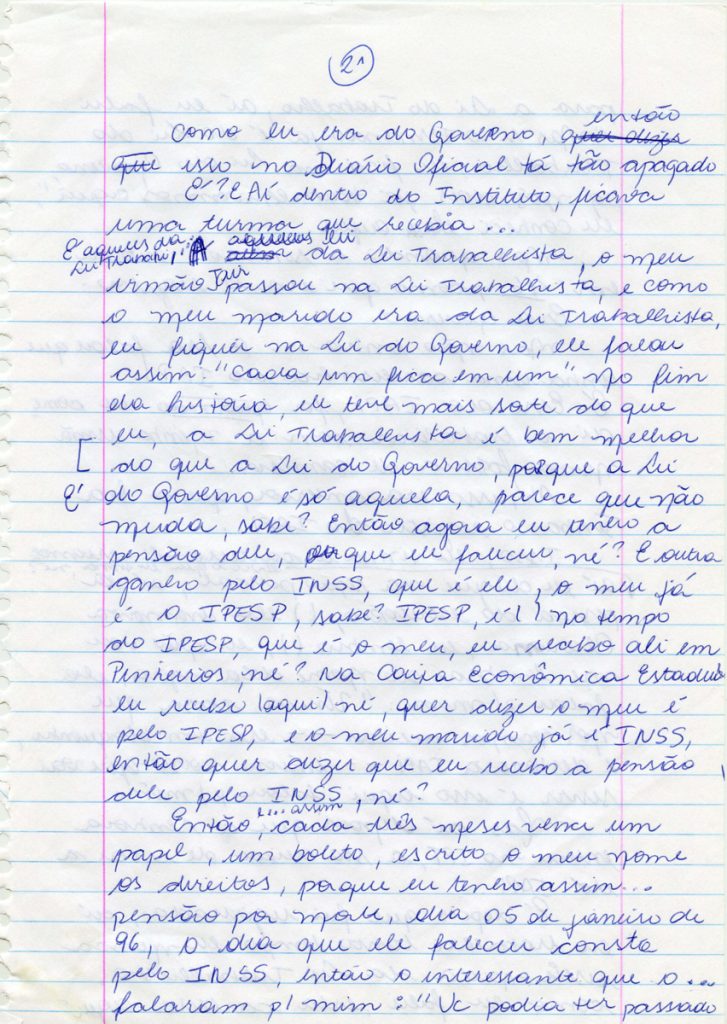 21
então
Como eu era do Governo, quer dizer
que isso no Diário Oficial tá tão apagado
É? E Aí dentro do Instituto, ficava
uma turma que recebia...
E aqueles da
Lei Trabalhi,
A aqueles lei da Lei Trabalhista, o meu
irmão Jur passou na Lei Trabalhista, e como
o meu marido era da Lei Trabalhista,
eu fiquei na Lei do Governo, ele falou
assim: "Cada um fica em um" no fim
da história, ele teve mais sorte do que
eu, a Lei Trabalhista é bem melhor
[ do que a Lei do Governo, porque a Lei
É do Governo é só aquela, parece que não
muda, sabe? Então agora eu tenho a
pensão dele, porque ele faleceu, né? E outra
ganho pelo INSS, que é ele, o meu já
é o IPESP, sabe? IPESP, é ( ) no tempo
do IPESP, que é o meu, eu recebo ali em
Pinheiros, né? Na Caixa Econômica Estadual
eu recebo (aqui) né, quer dizer o meu é
pelo IPESP, e o meu marido já é INSS,
então quer dizer que eu recebo a pensão
dele pelo INSS, né?
"...assim
Então, cada três meses vem um
papel, um boleto, escrito o meu nome
os direitos, porque eu tenho assim...
pensão por morte, dia 05 de janeiro de
96, o dia que ele faleceu consta
pelo INSS, então o interessante que o...
falaram p/ mim: "Vc podia ter passado